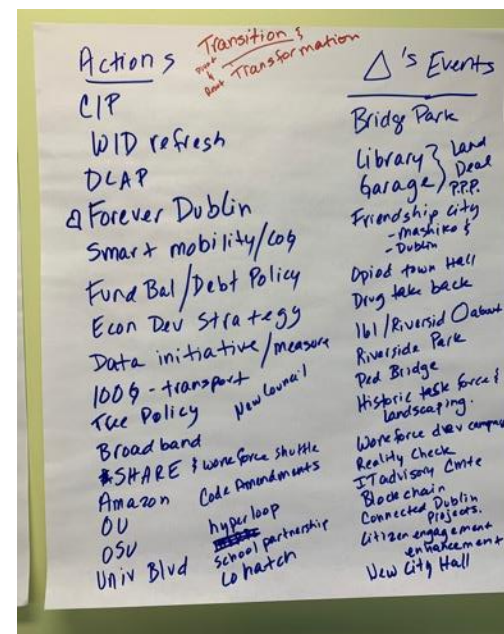 Actions
Transition &
Transformation
CIP
WID refresh
DCAP
Forever Dublin
Smart mobility/COG
Fund Bal/Debt Policy
Econ Dev Strategy
Data initiative/measure
100G - transport
New Council
Tree Policy
Broadband
SHARE & workforce shuttle
Amazon
Code Amendments
OU
hyperloop
OSU
school partnership
Univ Blvd
Cohatch
Δ's Events
Bridge Park
Library } Land
Garage } Deal
P.P.P.
Friendship City
- Mashiko &
- Dublin
Opiod town Hall
Drug take back
161/Riversid O about
Riverside Park
Ped Bridge
Historic task force &
landscaping.
Workforce dev campus
Reality Check
IT advisory Cmte
Blockchain
Connected Dublin
Projects.
Citizen engagement
enhancement
New City Hall